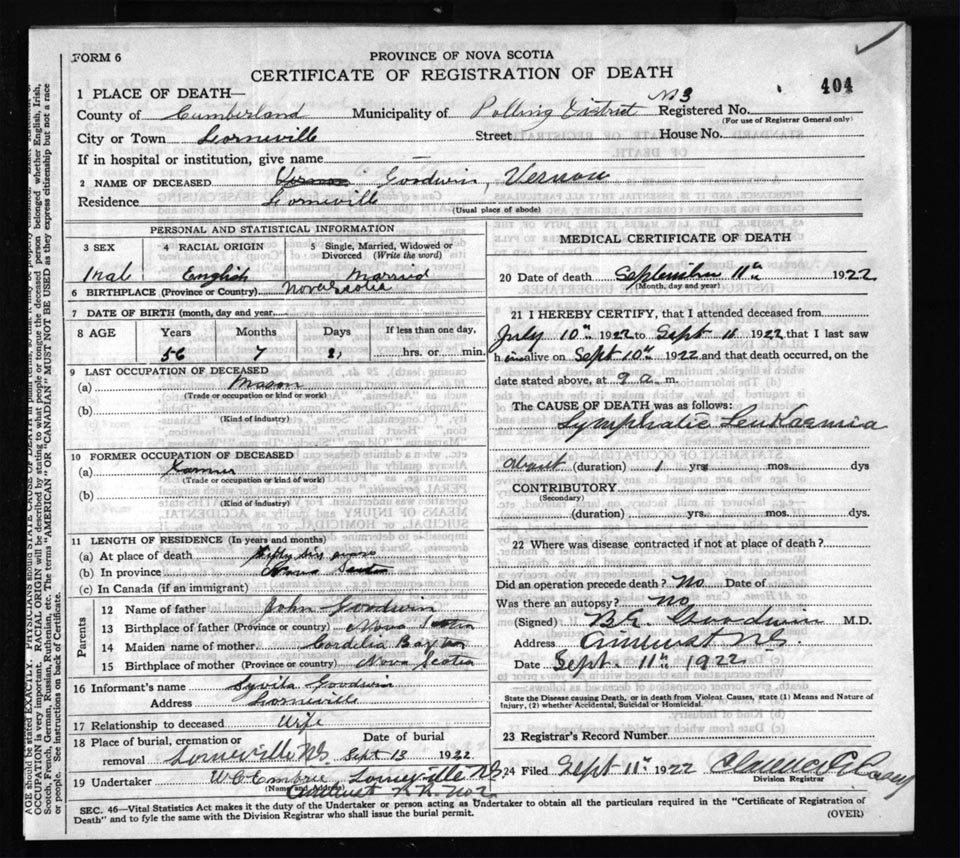 FORM 6
PROVINCE OF NOVA SCOTIA
CERTIFICATE OF REGISTRATION OF DEATH
404
1 PLACE OF DEATH—
County of Cumberland Municipality of Polling District No 3 Registered No.
(For use of Registrar General only)
City or Town Lorneville Street House No.
If in hospital or institution, give name —
2 NAME OF DECEASED Goodwin, Vernon
Residence Lorneville
(Usual place of abode)
PERSONAL AND STATISTICAL INFORMATION
3 SEX 4 RACIAL ORIGIN 5 Single, Married, Widowed or Divorced (Write the word)
Male English Married
6 BIRTHPLACE (Province or Country) Nova Scotia
7 DATE OF BIRTH (month, day and year)
8 AGE Years Months Days If less than one day,
56 7 hrs. or min.
9 LAST OCCUPATION OF DECEASED
(a) Mason
(Trade or occupation or kind or work)
(b)
(Kind of industry)
10 FORMER OCCUPATION OF DECEASED
(a) Farmer
(Trade or occupation or kind of work)
(b)
(Kind of industry)
11 LENGTH OF RESIDENCE (In years and months)
(a) At place of death Fifty six years
(b) In province Nova Scotia
(c) In Canada (if an immigrant)
Parents
12 Name of father John Goodwin
13 Birthplace of father (Province or country) Nova Scotia
14 Maiden name of mother Cordelia Baxter
15 Birthplace of mother (Province or country) Nova Scotia
16 Informant's name Goodwin
Address Lorneville
17 Relationship to deceased Wife
18 Place of burial, cremation or removal Date of burial
Lorneville NS Sept 13 1922
19 Undertaker W C Embree, Lorneville NS
(Name and Address)
Amherst R.R. No 2
MEDICAL CERTIFICATE OF DEATH
20 Date of death September 11th 1922
(Month, day and year)
21 I HEREBY CERTIFY, that I attended deceased from
July 10th 1922 to Sept 11 1922 that I last saw
h im alive on Sept 10th 1922 and that death occurred, on the
date stated above, at 9 a. m.
The CAUSE OF DEATH was as follows:
Lymphatic Leukaemia
about (duration) 1 yrs mos. dys
CONTRIBUTORY
(Secondary)
(duration) yrs. mos. dys.
22 Where was disease contracted if not at place of death?
Did an operation precede death? No Date of
Was there an autopsy? No
(Signed) Goodwin M.D.
Address Amherst NS
Date Sept 11th 1922
State the Disease causing Death, or in death from Violent Causes, state (1) Means and Nature of
Injury, (2) whether Accidental, Suicidal or Homicidal.
23 Registrar's Record Number
24 Filed Sept 11th 1922 Clarence
Division Registrar
SEC. 46—Vital Statistics Act makes it the duty of the Undertaker or person acting as Undertaker to obtain all the particulars required in the "Certificate of Registration of
Death" and to fyle the same with the Division Registrar who shall issue the burial permit.
(OVER)
AGE should be stated EXACTLY. PHYSICIANS should STATE CAUSE OF DEATH in plain terms, so that it may be properly
OCCUPATION is very important. RACIAL ORIGIN will be described by stating to what people or tongue the deceased person belonged whether English, Irish,
Scotch, French, German, Russian, Ruthenian, etc. The terms "AMERICAN" OR "CANADIAN" MUST NOT BE USED as they express citizenship but not a race
of people. See instructions on back of Certificate.